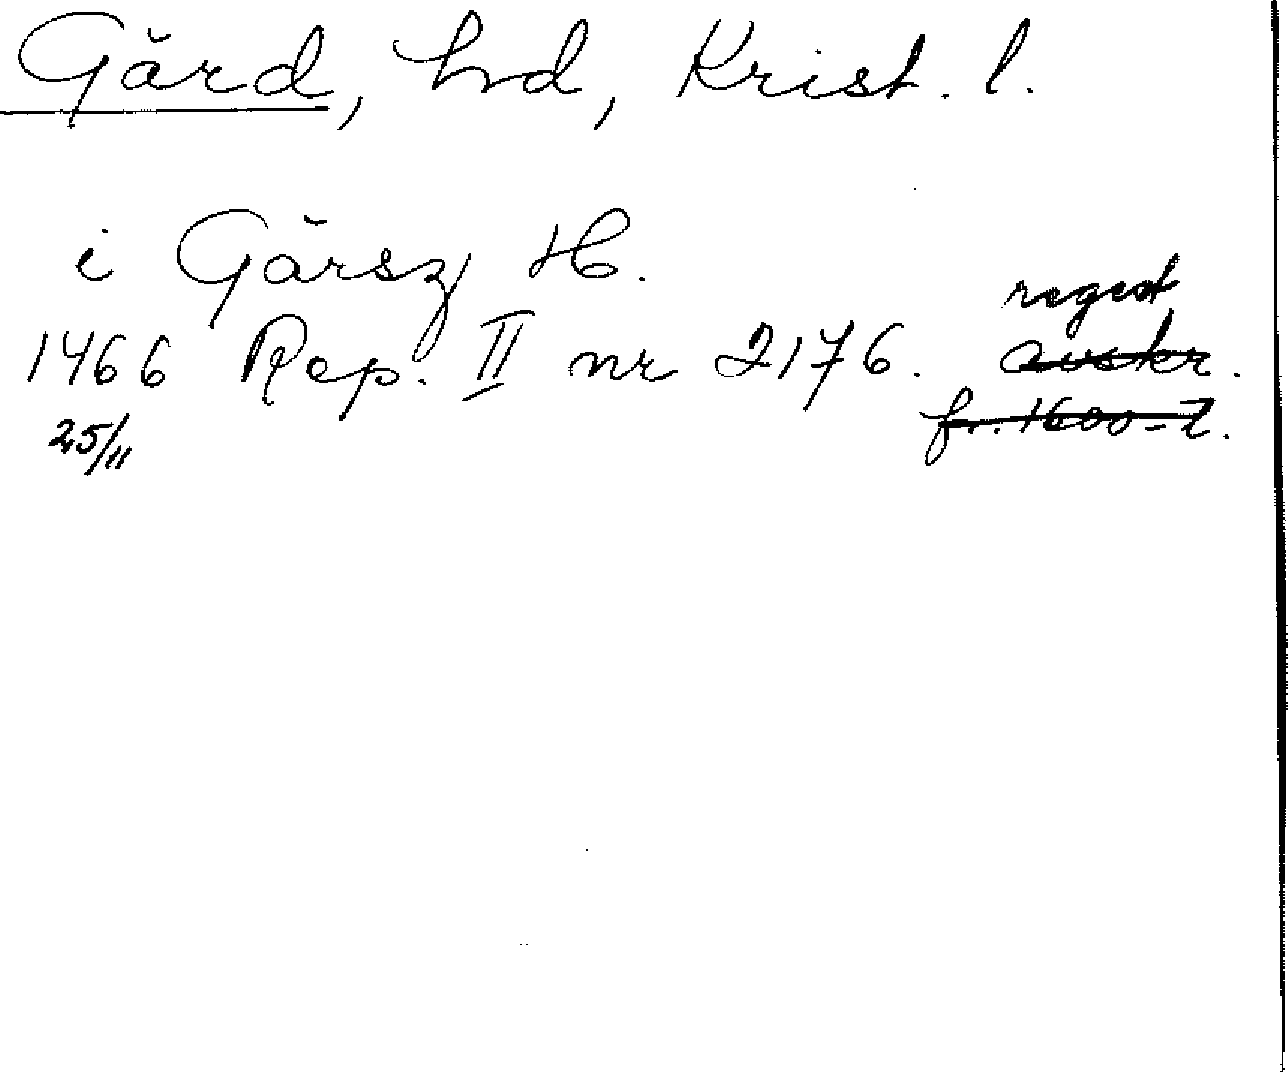 Gärd, hd, Krist. l.
i Gärsz H.
regest
1466 Rep. II nr 2176. avskr.
25/11 fr. 1600-t.